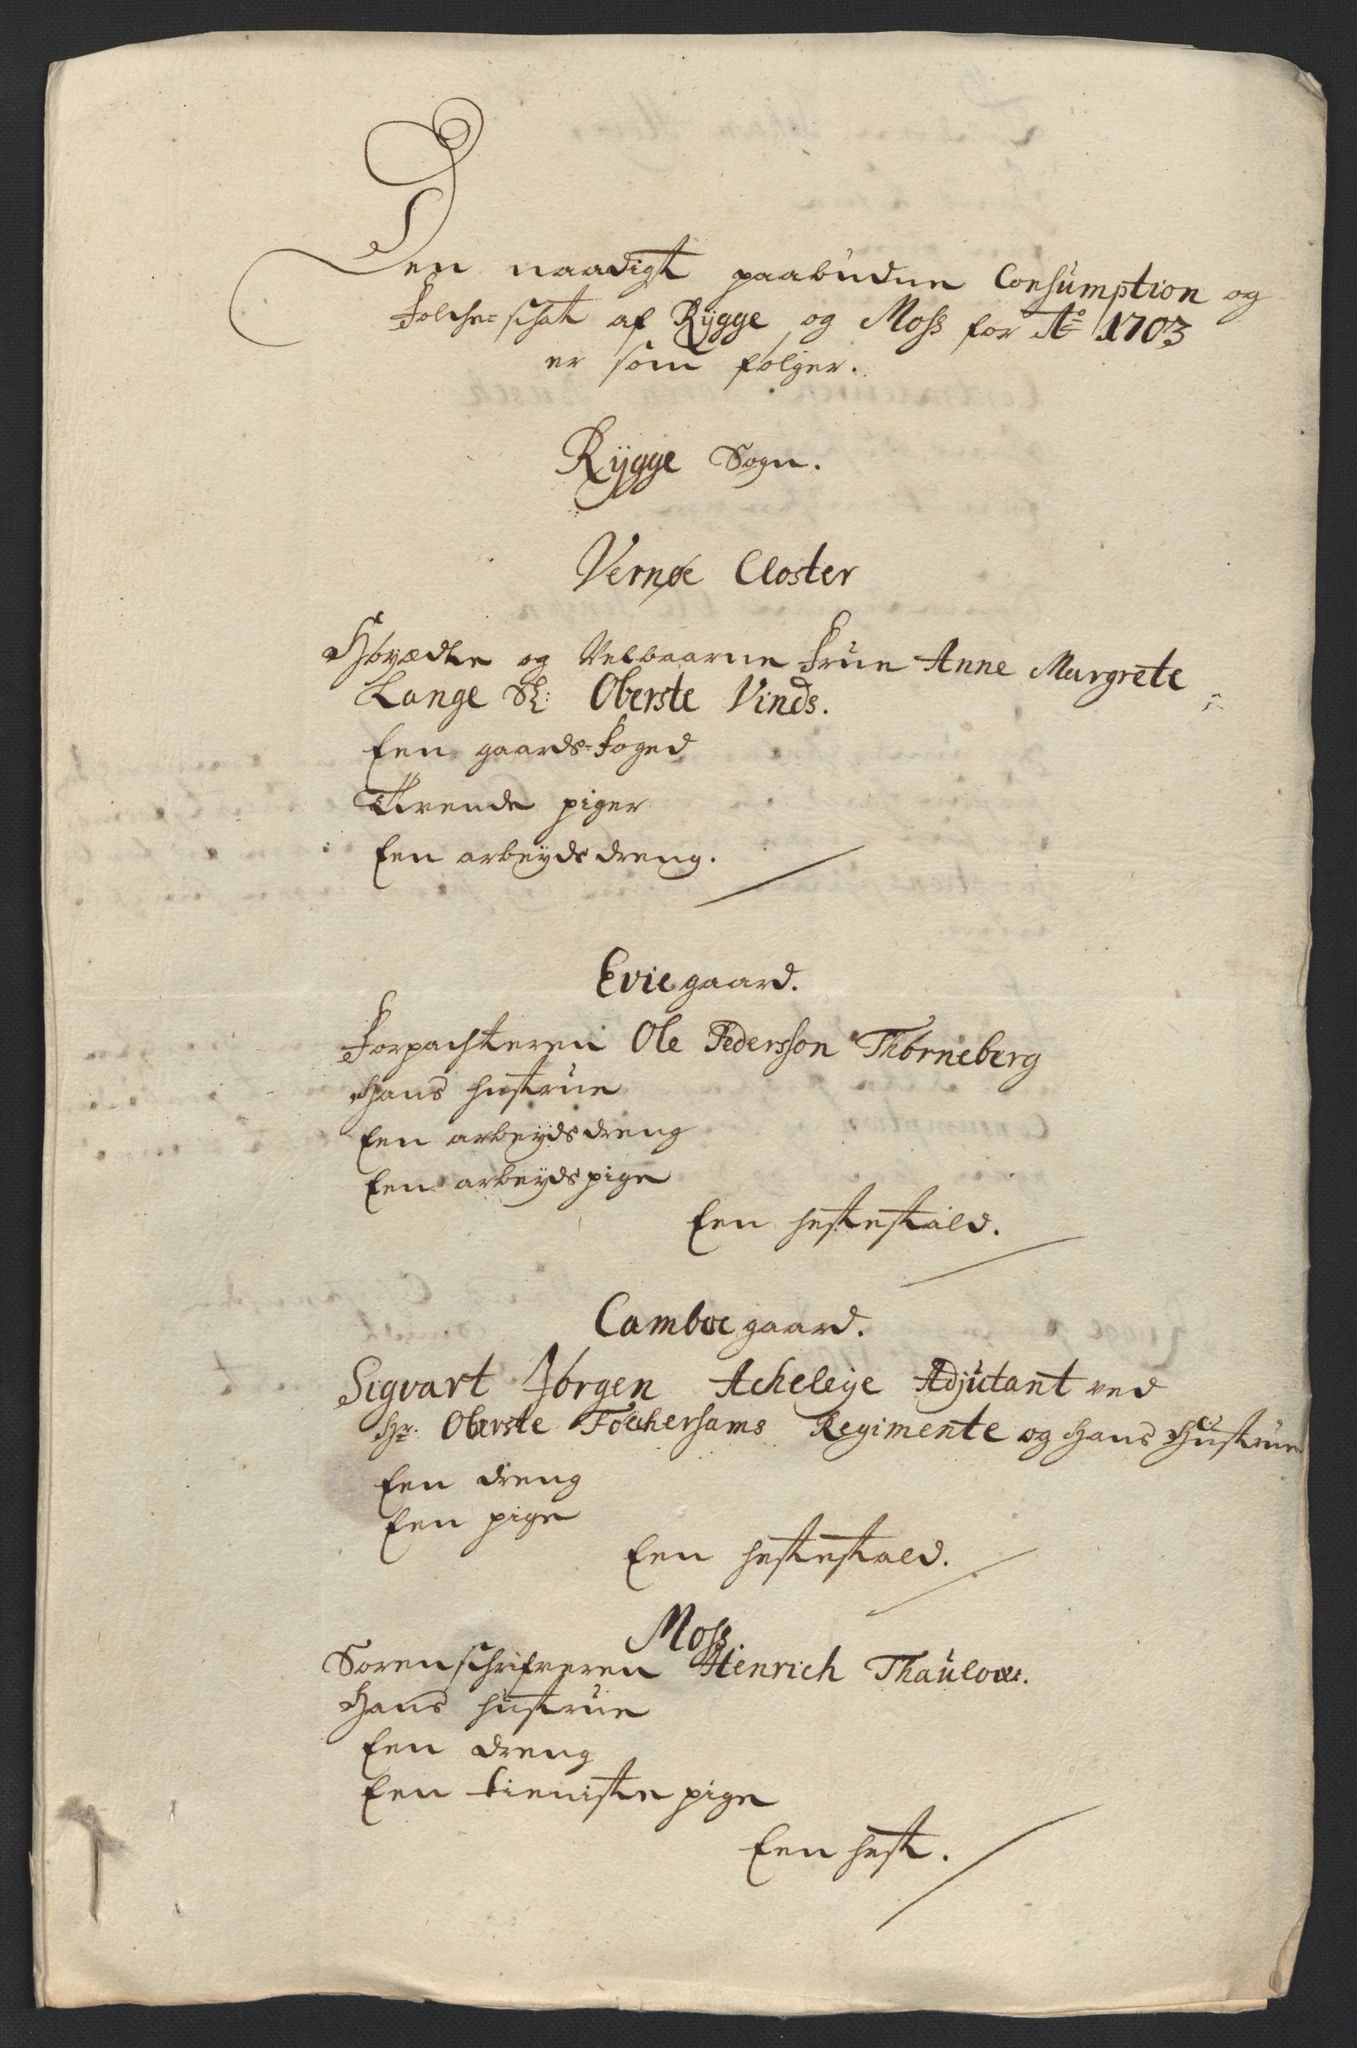 Den naadigst paabudne Consumption og
Folche-schat af Rÿgge og Moss for Ao 1703
er som følger.
Rÿgge Sogn.
Vernøe Closter
Høyædle og Velbaarne Frue Anne Margrete
Lange Sl: Oberste Vinds.
Een gaards-Foged
Tvende piger
Een arbeyds dreng.
Evie gaard.
Forpachteren Ole Pedersson Thorneberg
Hans hustrue
Een arbeydsdreng
Een arbeyds pige
Een hestestald.
Camboe gaard.
Sigvart Jørgen Acheleÿe Adjutant ved
Hr. Oberste Folchersams Regimente og Hans Hustrue
Een dreng
Een pige
Een hestestald.
Moss
Sorenschrifveren Henrich Thaulow.
Hans hustrue
Een dreng
Een tieniste pige
Een hest.